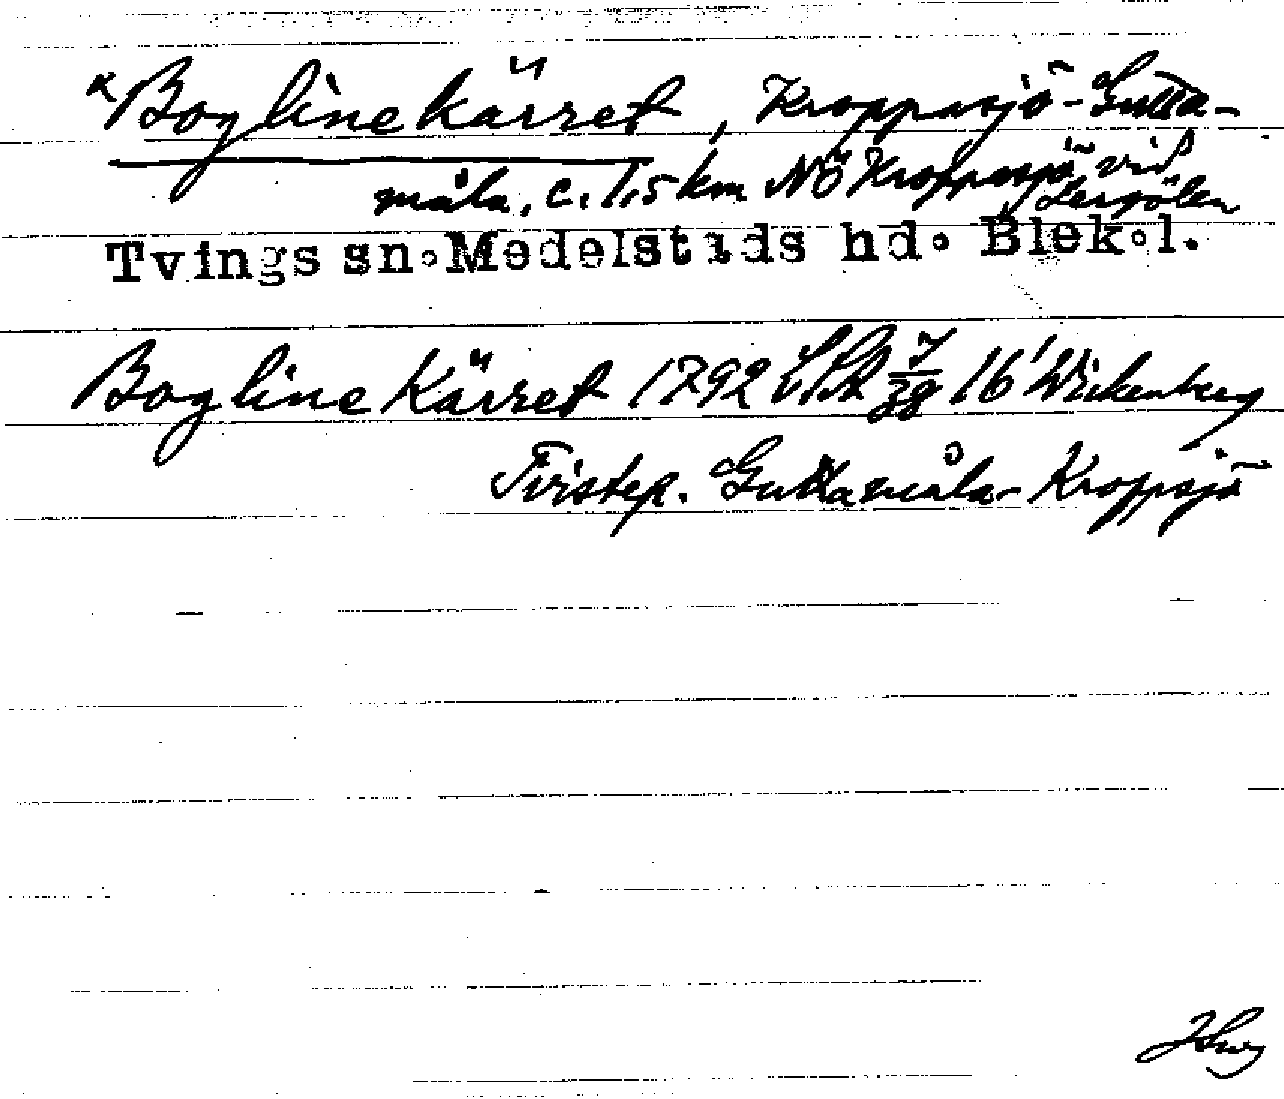 × Boglinekärret, Kroppasjö-Gutta-
måla, c. 1,5 km NÖ Kroppasjö vid
Lergölen
Tvings sn. Medelstads hd. Blek.l.
Bogline Kärret 1792 LSA 7/38 16' Wickenberg
Tvistep. Guttamåla-Kroppsjö